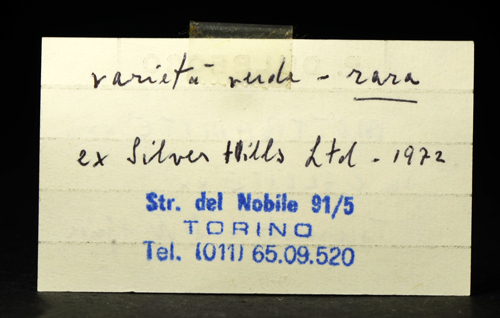 varietà verde - rara
ex Silver Hills Ltd - 1972
Str. del Nobile 91/5
TORINO
Tel. (011) 65.09.520